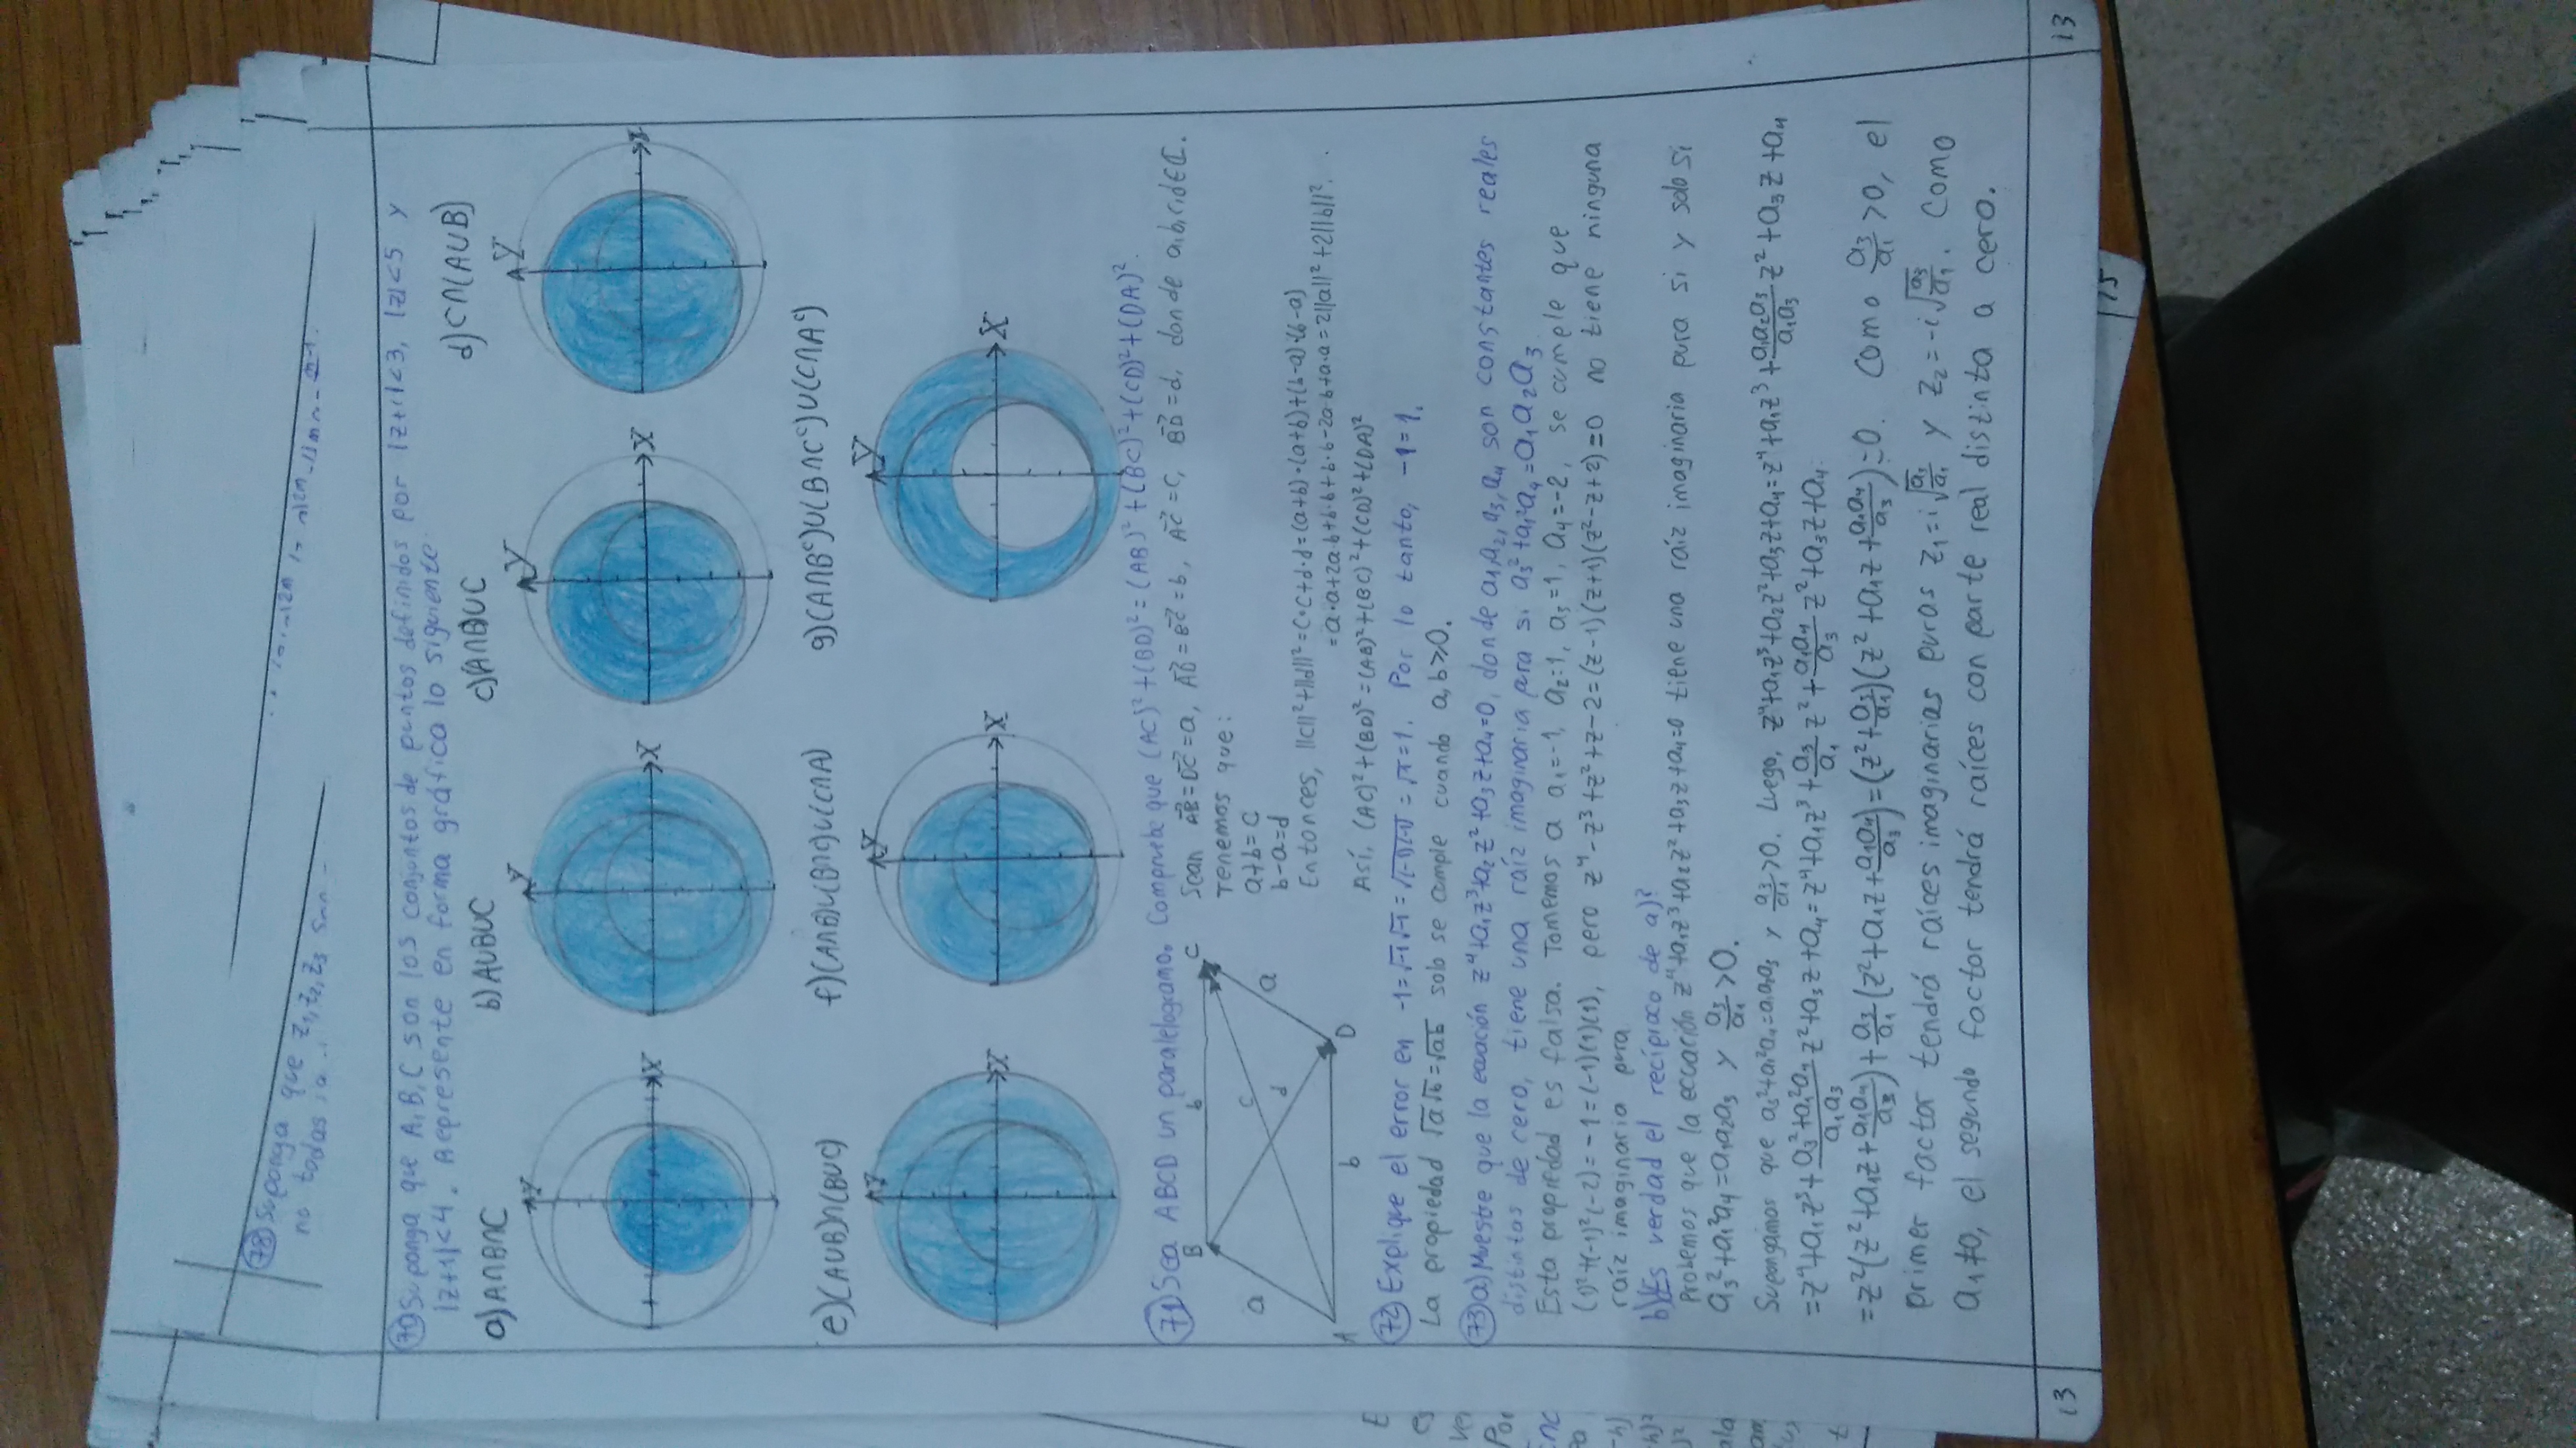 78 Suponga que z₁, z₂, z₃ son
no todas
70 Suponga que A, B, C son los conjuntos de puntos definidos por |z+i|<3, |z|<5 y
|z+1|<4. Represente en forma gráfica lo siguiente
a) A∩B∩C
b) A∪B∪C
c) (A∩B)∪C
d) C∩(A∪B)
Y
X
Y
X
Y
X
Y
e) (A∪B)∩(B∪C)
f) (A∩B)∪(B∩C)∪(C∩A)
g) (A∩Bᶜ)∪(B∩Cᶜ)∪(C∩Aᶜ)
Y
X
Y
X
Y
X
71 Sea ABCD un paralelogramo. Compruebe que (AC)²+(BD)²=(AB)²+(BC)²+(CD)²+(DA)².
B b C
a c d a
A b D
Sean AB⃗=DC⃗=a, AD⃗=BC⃗=b, AC⃗=c, BD⃗=d, donde a,b,c,d∈ℂ.
Tenemos que:
a+b=c
b-a=d
Entonces, ||c||²+||d||²=c·c+d·d=(a+b)·(a+b)+(b-a)·(b-a)
=a·a+2a·b+b·b+b·b-2a·b+a·a=2||a||²+2||b||².
Así, (AC)²+(BD)²=(AB)²+(BC)²+(CD)²+(DA)²
72 Explique el error en -1=√-1√-1=√(-1)(-1)=√1=1. Por lo tanto, -1=1.
La propiedad √a√b=√ab solo se cumple cuando a,b≥0.
73 a) Muestre que la ecuación z⁴+a₁z³+a₂z²+a₃z+a₄=0, donde a₁,a₂,a₃,a₄ son constantes reales
distintas de cero, tiene una raíz imaginaria pura si a₃²+a₁²a₄=a₁a₂a₃
Esta propiedad es falsa. Tomemos a a₁=-1, a₂=1, a₃=1, a₄=-2, se cumple que
(1)²+(-1)²(-2)=-1=(-1)(1)(1), pero z⁴-z³+z²+z-2=(z-1)(z+1)(z²-z+2)=0 no tiene ninguna
raíz imaginaria pura
b) ¿Es verdad el recíproco de a)?
Probemos que la ecuación z⁴+a₁z³+a₂z²+a₃z+a₄=0 tiene una raíz imaginaria pura si y solo si
a₃²+a₁²a₄=a₁a₂a₃ y a₃/a₁>0.
Supongamos que a₃²+a₁²a₄=a₁a₂a₃ y a₃/a₁>0. Luego, z⁴+a₁z³+a₂z²+a₃z+a₄=z⁴+a₁z³+a₁a₂a₃/a₁a₃ z²+a₃z+a₄
=z⁴+a₁z³+a₃²+a₁²a₄/a₁a₃ z²+a₃z+a₄=z⁴+a₁z³+a₃/a₁ z²+a₁a₄/a₃ z²+a₃z+a₄
=z²(z²+a₁z+a₁a₄/a₃)+a₃/a₁(z²+a₁z+a₁a₄/a₃)=(z²+a₃/a₁)(z²+a₁z+a₁a₄/a₃)=0. Como a₃/a₁>0, el
primer factor tendrá raíces imaginarias puras z₁=i√a₃/a₁ y z₂=-i√a₃/a₁. Como
a₁≠0, el segundo factor tendrá raíces con parte real distinta a cero.
13
13
15